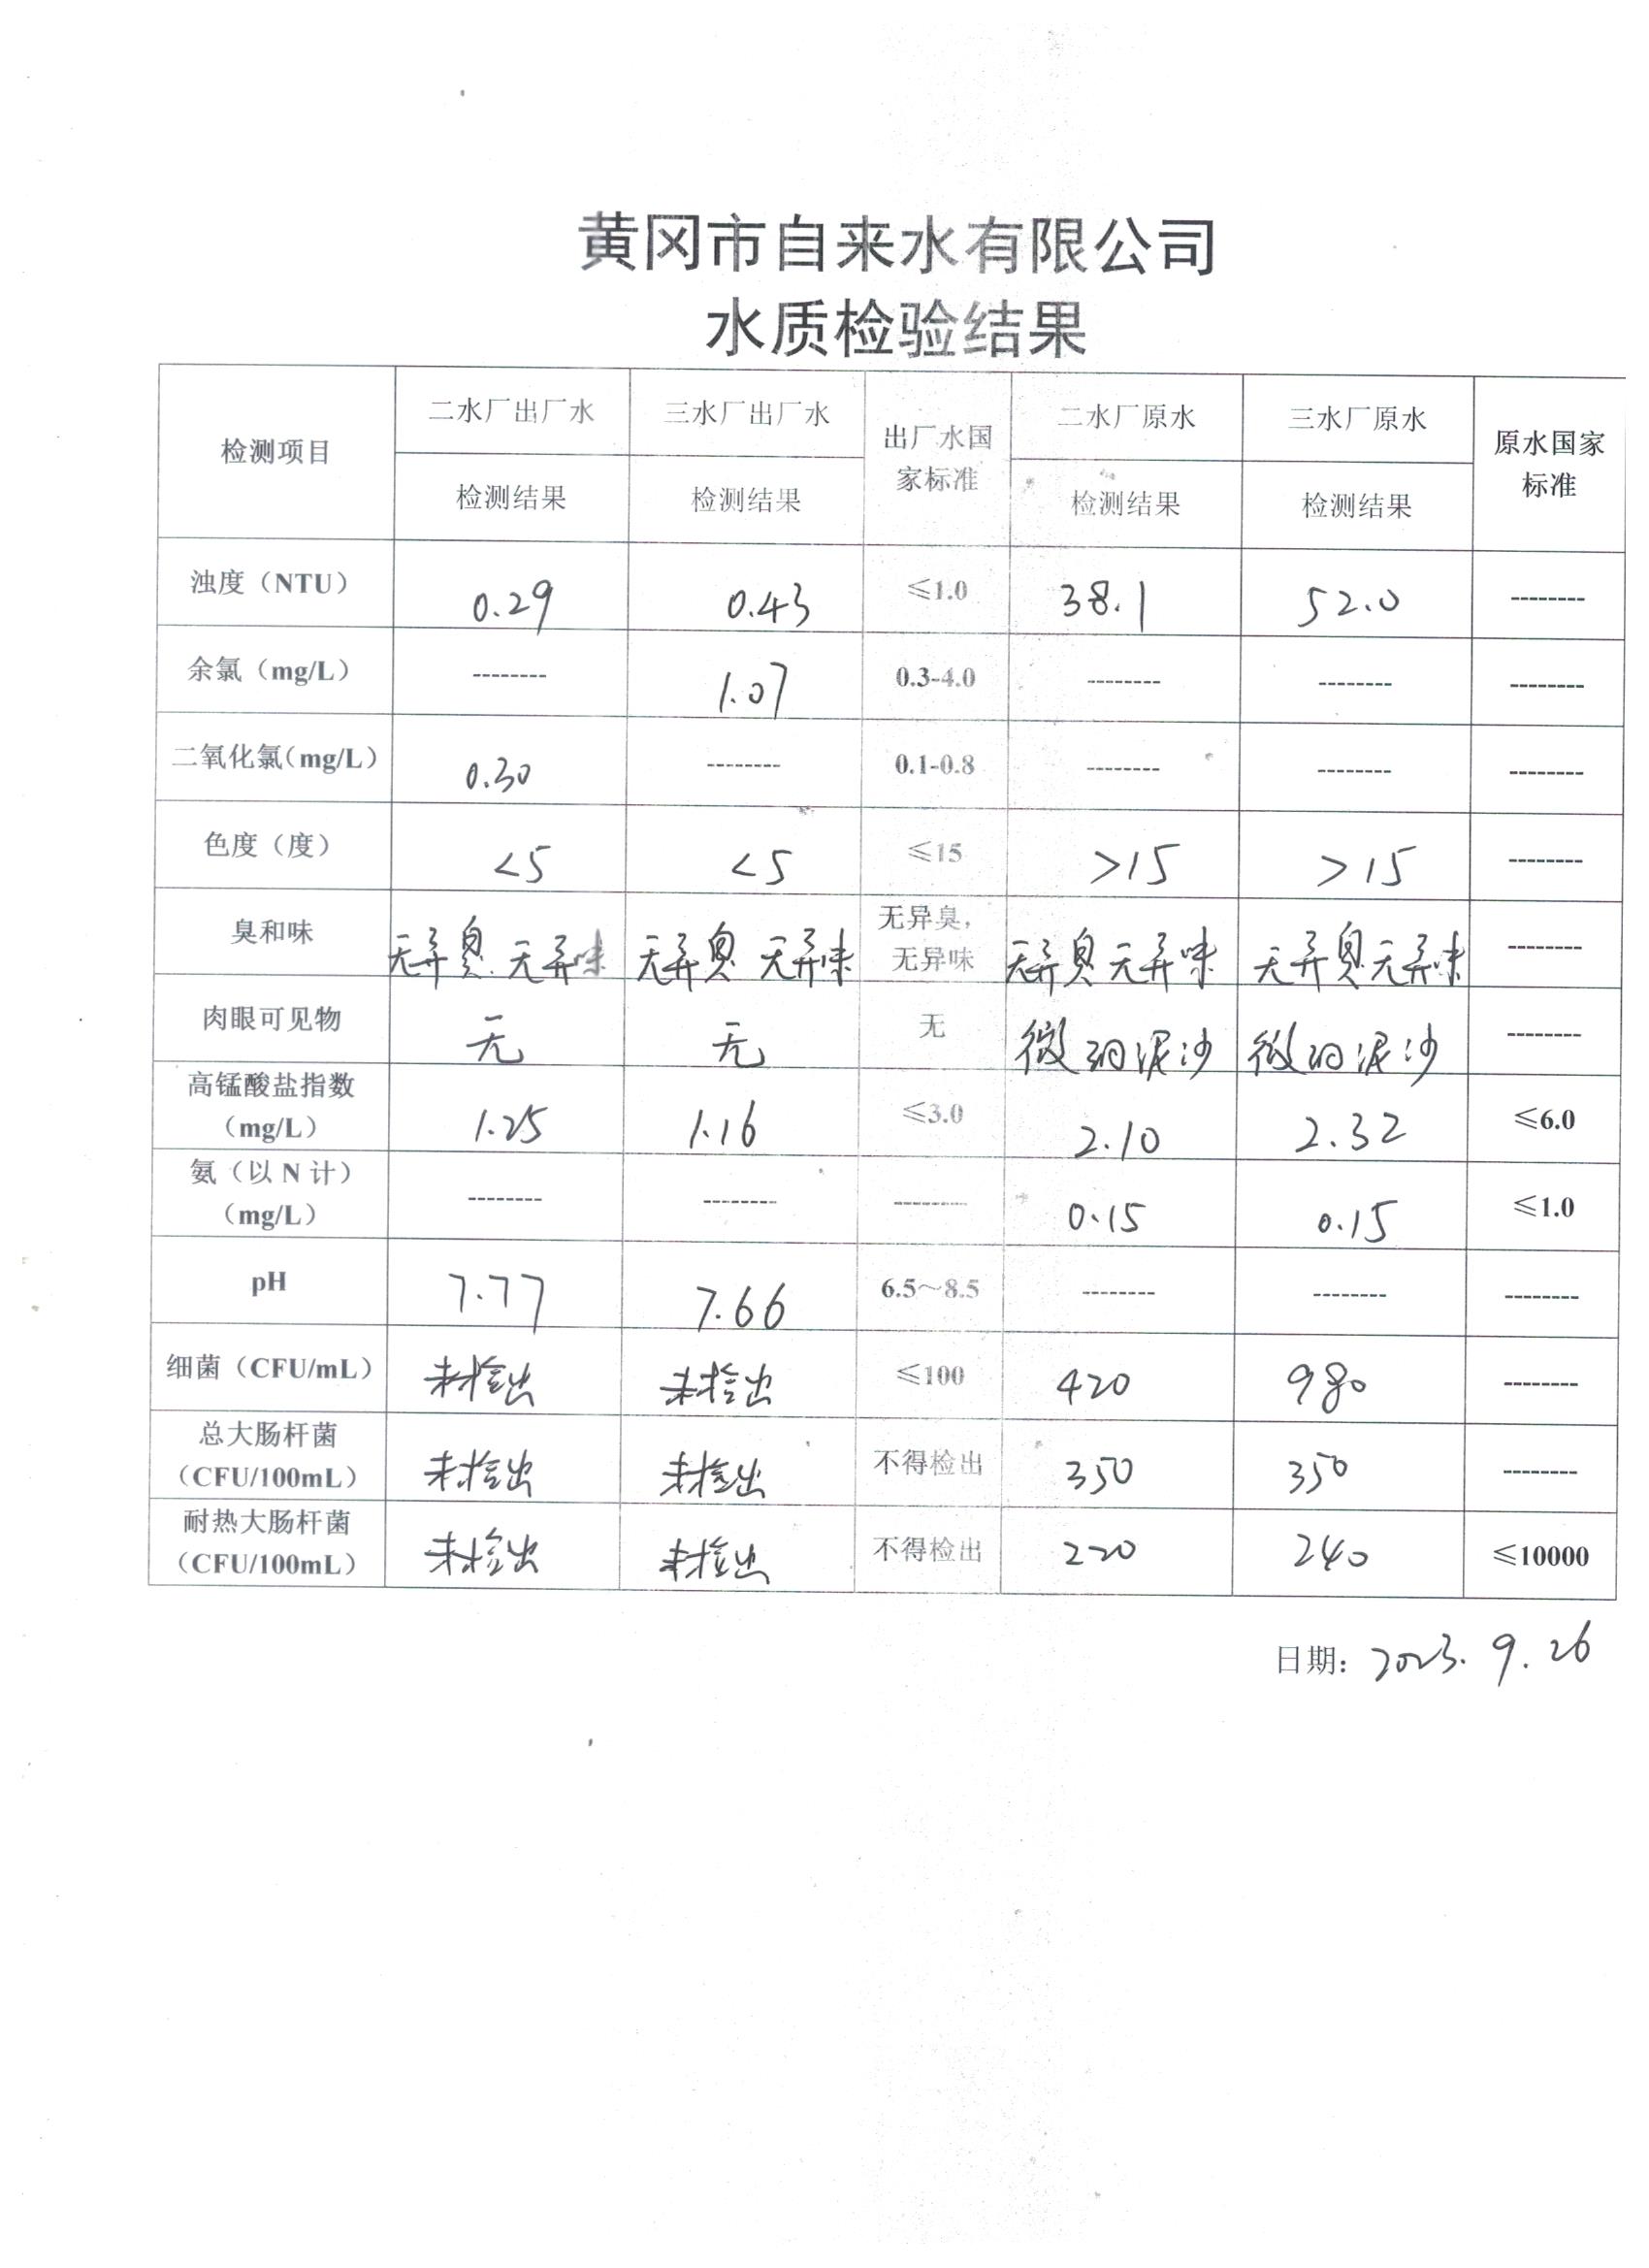 黄冈市自来水有限公司
水质检验结果
检测项目 二水厂出厂水 三水厂出厂水 出厂水国家标准 二水厂原水 三水厂原水 原水国家标准
检测结果 检测结果 检测结果 检测结果
浊度（NTU） 0.29 0.43 ≤1.0 38.1 52.0 --------
余氯（mg/L） -------- 1.07 0.3-4.0 -------- -------- --------
二氧化氯（mg/L） 0.30 -------- 0.1-0.8 -------- -------- --------
色度（度） <5 <5 ≤15 >15 >15 --------
臭和味 无异臭.无异味 无异臭 无异味 无异臭，无异味 无异臭无异味 无异臭无异味 --------
肉眼可见物 无 无 无 微细泥沙 微细泥沙 --------
高锰酸盐指数（mg/L） 1.25 1.16 ≤3.0 2.10 2.32 ≤6.0
氨（以 N 计）（mg/L） -------- -------- -------- 0.15 0.15 ≤1.0
pH 7.77 7.66 6.5～8.5 -------- -------- --------
细菌（CFU/mL） 未检出 未检出 ≤100 420 980 --------
总大肠杆菌（CFU/100mL） 未检出 未检出 不得检出 350 350 --------
耐热大肠杆菌（CFU/100mL） 未检出 未检出 不得检出 220 240 ≤10000
日期：2023.9.26